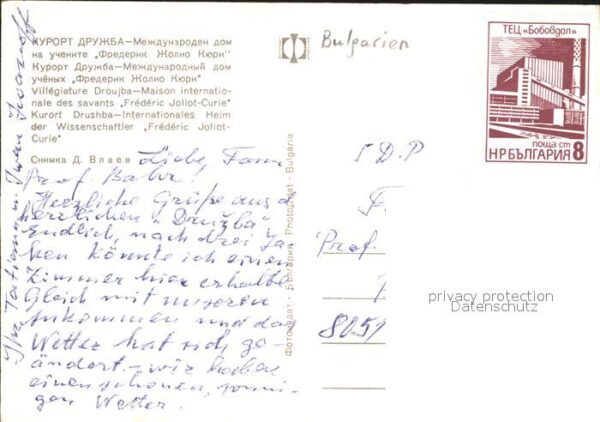 КУРОРТ ДРУЖБА—Международен дом
на учените „Фредерик Жолио Кюри"
Курорт Дружба—Международный дом
учёных „Фредерик Жолио Кюри"
Villégiature Droujba—Maison internatio-
nale des savants „Frédéric Joliot-Curie"
Kurort Drushba—Internationales Heim
der Wissenschaftler „Frédéric Joliot-
Curie"
Снимка Д. Влаев
Liebe, Fam.
Prof. Bahr!
Herzliche Grüße aus d.
herrlichen "Družba"
Endlich, nach drei
könnte ich einen
Zimmer hier erhalten
Gleich mit unseren
ankommen und das
Wetter hat sich ge-
ändert - wir haben
einen schönen, sonni-
gen Wetter.
Ihr Iwan Iwanoff
Фотоиздат - България Photoizdat - Bulgaria
Bulgarien
ТЕЦ „Бобовдол"
поща ст 8
НР БЪЛГАРИЯ
F.
Prof.
privacy protection
Datenschutz